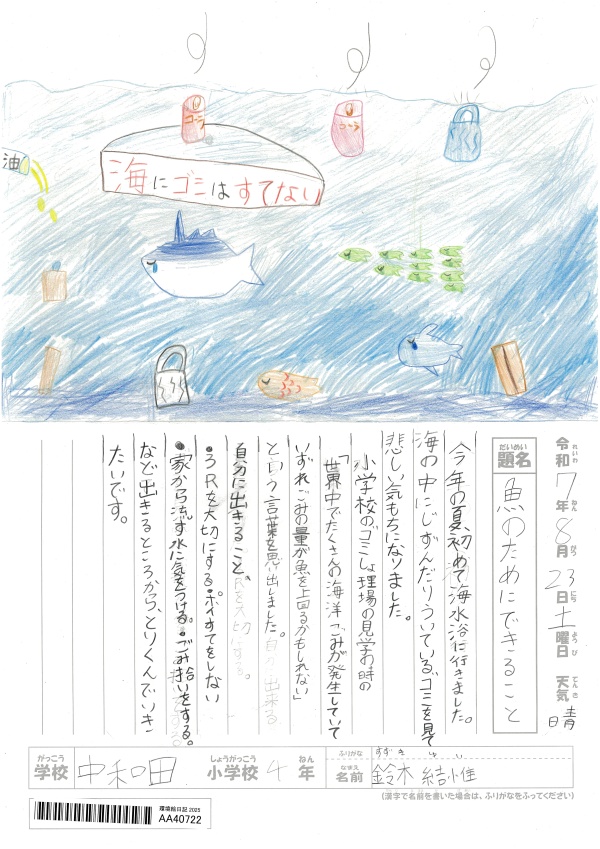 コーラ
コーラ
油
海にゴミはすてない
令和7年8月23日土曜日 天気 晴
れいわ ねん がつ にち ようび てんき
だいめい
題名
魚のためにできること
今年の夏、初めて海水浴に行きました。
海の中にしずんだりういているゴミを見て
悲しい気もちになりました。
小学校のゴミしょ理場の見学の時の
「世界中でたくさんの海洋ごみが発生していて
いずれごみの量が魚を上回るかもしれない」
という言葉を思い出しました。
自分に出きること、
・3Rを大切にする・ポイすてをしない
・家から流す水に気をつける。・ごみ拾いをする。
など出きるところから、とりくんでいき
たいです。
がっこう
学校
中和田
しょうがっこう
小学校
4
ねん
年
ふりがな
すずき ゆい
なまえ
名前
鈴木 結惟
(漢字で名前を書いた場合は、ふりがなをふってください)
環境絵日記 2025
AA40722